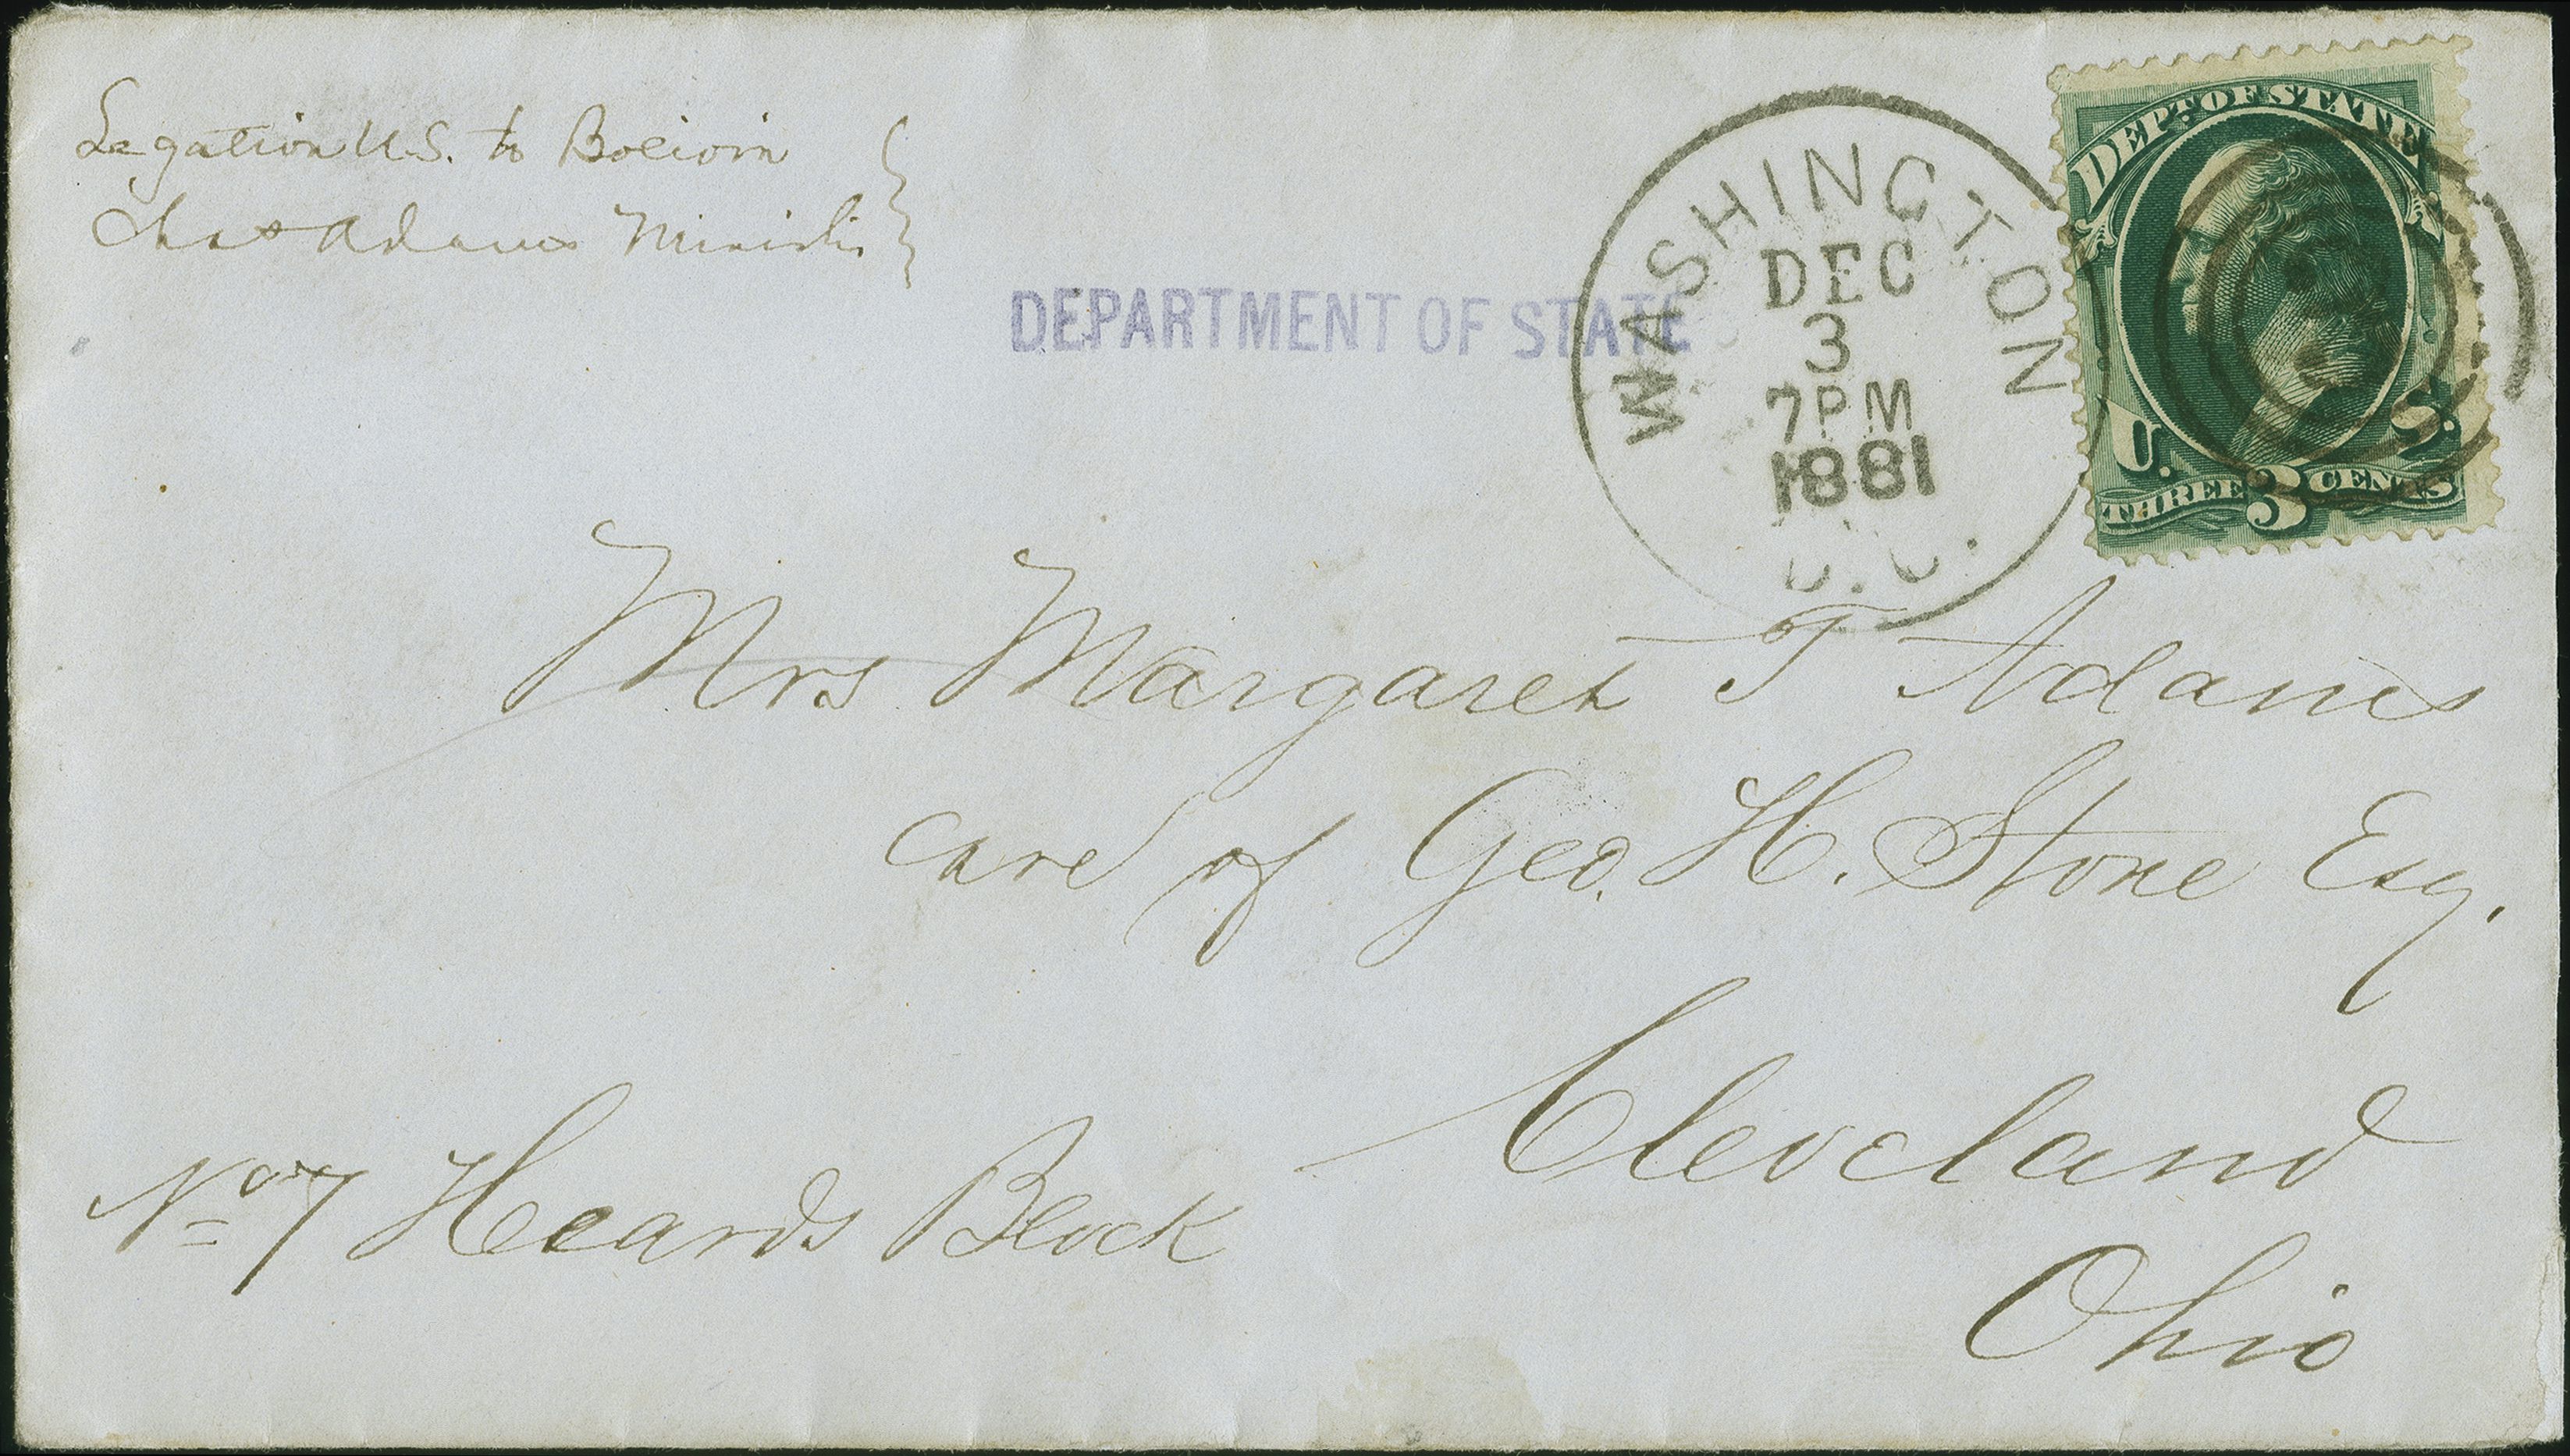 Legation U.S. to Bolivia
Chas Adams Minister
DEPARTMENT OF STATE
WASHINGTON
DEC
3
7PM
1881
D.C.
DEPT. OF STATE
U. S.
THREE 3 CENTS
Mrs Margaret T Adams
care of Geo. H. Stone Esq.
Cleveland
Ohio
No 7 Heards Block